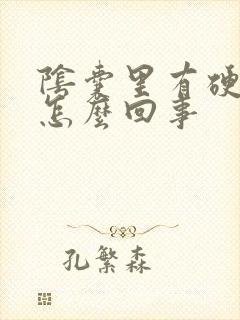 陰囊里有硬
怎麼回事
孔繁森